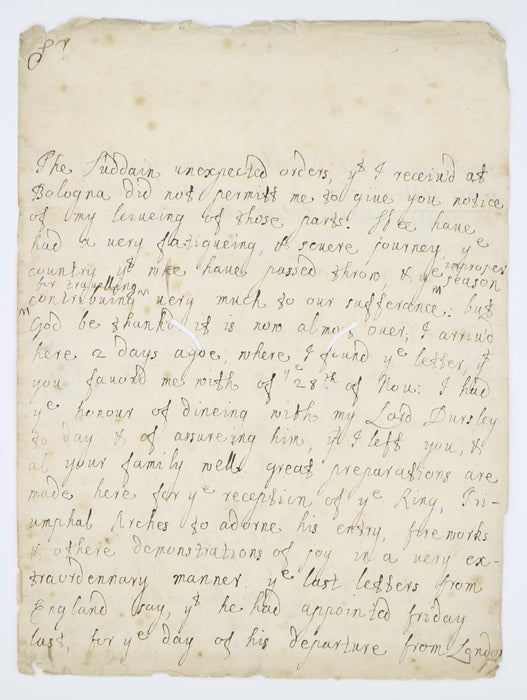 Sr
The suddain unexpected orders, yt I receiud at
Bologna did not permitt me to give you notice
of my leiueing of those parts. Wee have
had a very fatigueing, & severe journey, ye
country yt wee have passed throw, & ye improper season
for travelling
contributing very much to our sufferance: but
God be thankd it is now almost over, I arriud
here 2 days agoe, where I found ye letter, yt
you favord me with of ye 28th of Nou: I had
ye honour of dineing with my Lord Dursley
to day & of assureing him, yt I left you, &
al your family well. great preparations are
made here for ye reception of ye King, Tri-
umphal Arches to adorne his entry, fireworks
& othere demonstrations of joy in a very ex-
traordennary manner. ye last letters from
England say, yt he had appointed friday
last, for ye day of his departure from London